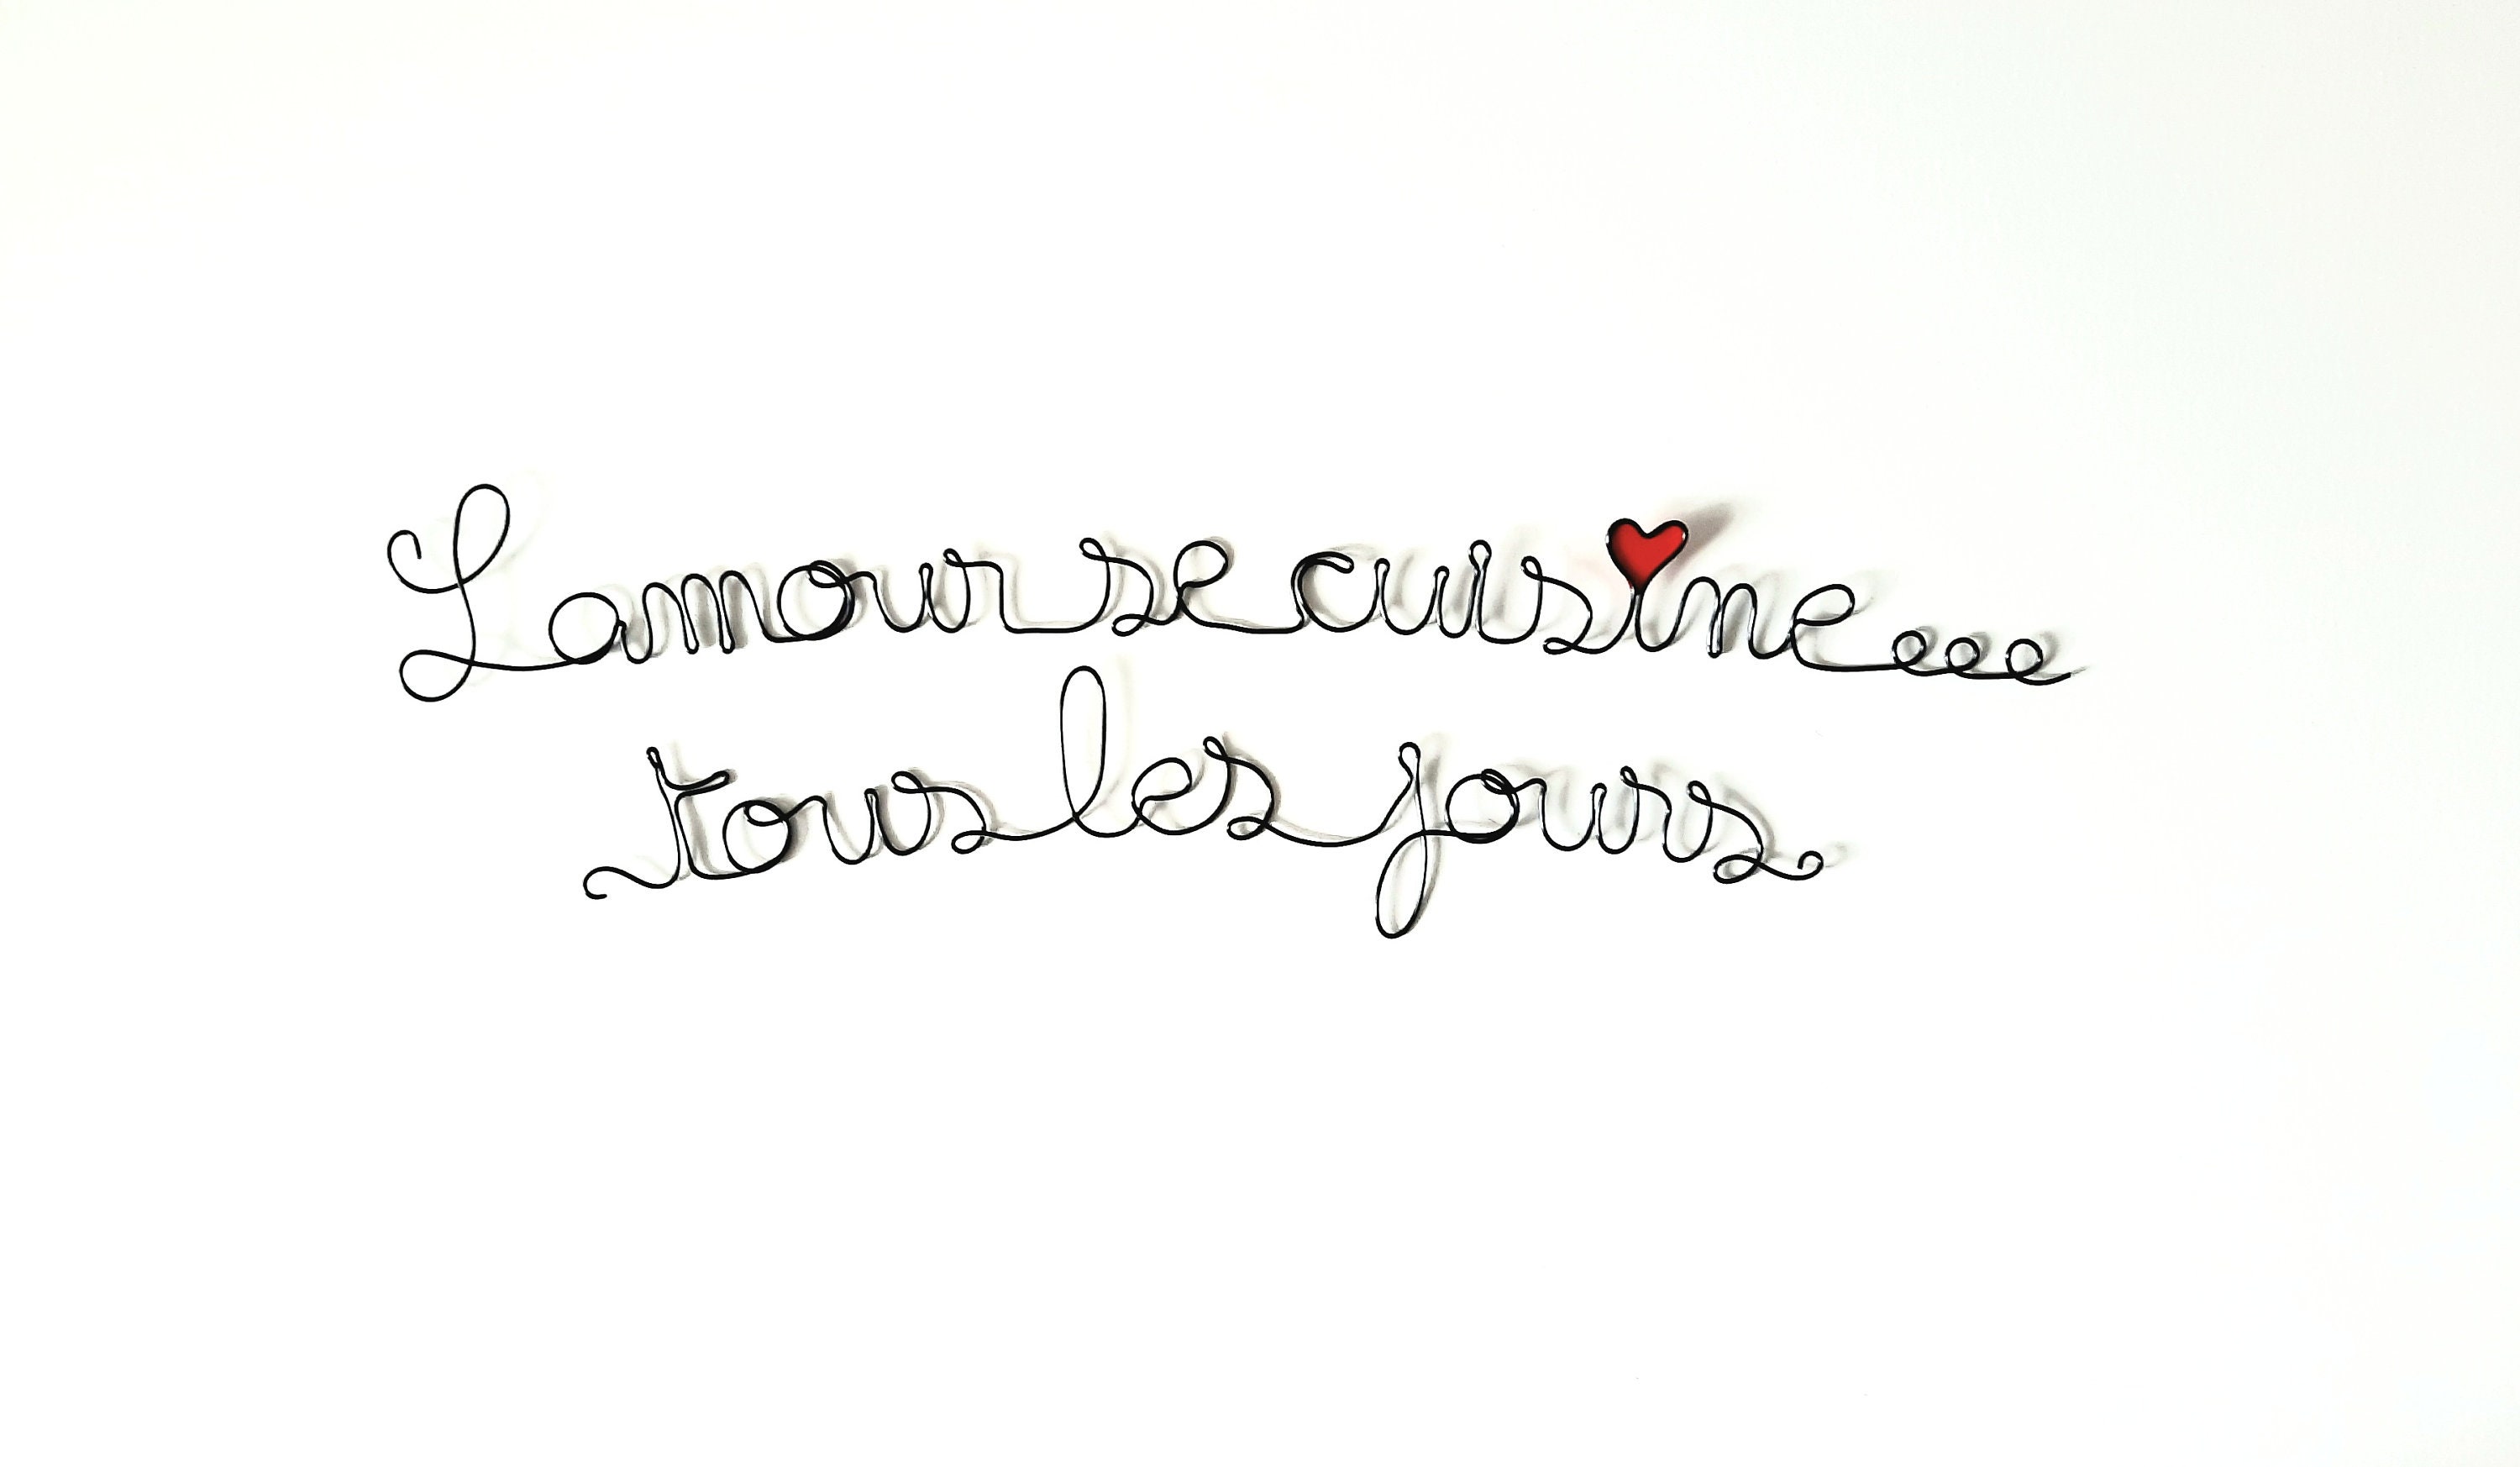 Lamour se cuisine...
tous les jours